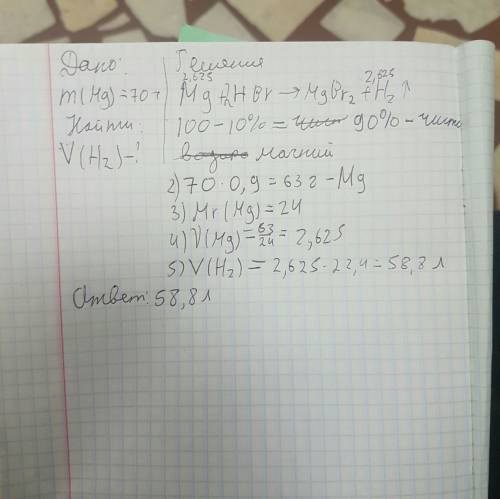 Дано:
m(Mg)=70 г
Найти:
V(H₂)-?
Решения
2,625 2,625
Mg+2HBr→MgBr₂+H₂↑
100-10%= 90% - чисто
магний
2) 70·0,9=63 г - Mg
3) Mr(Mg)=24
4) V(Mg)=63/24=2,625
5) V(H₂)=2,625·22,4=58,8 л
Ответ: 58,8 л